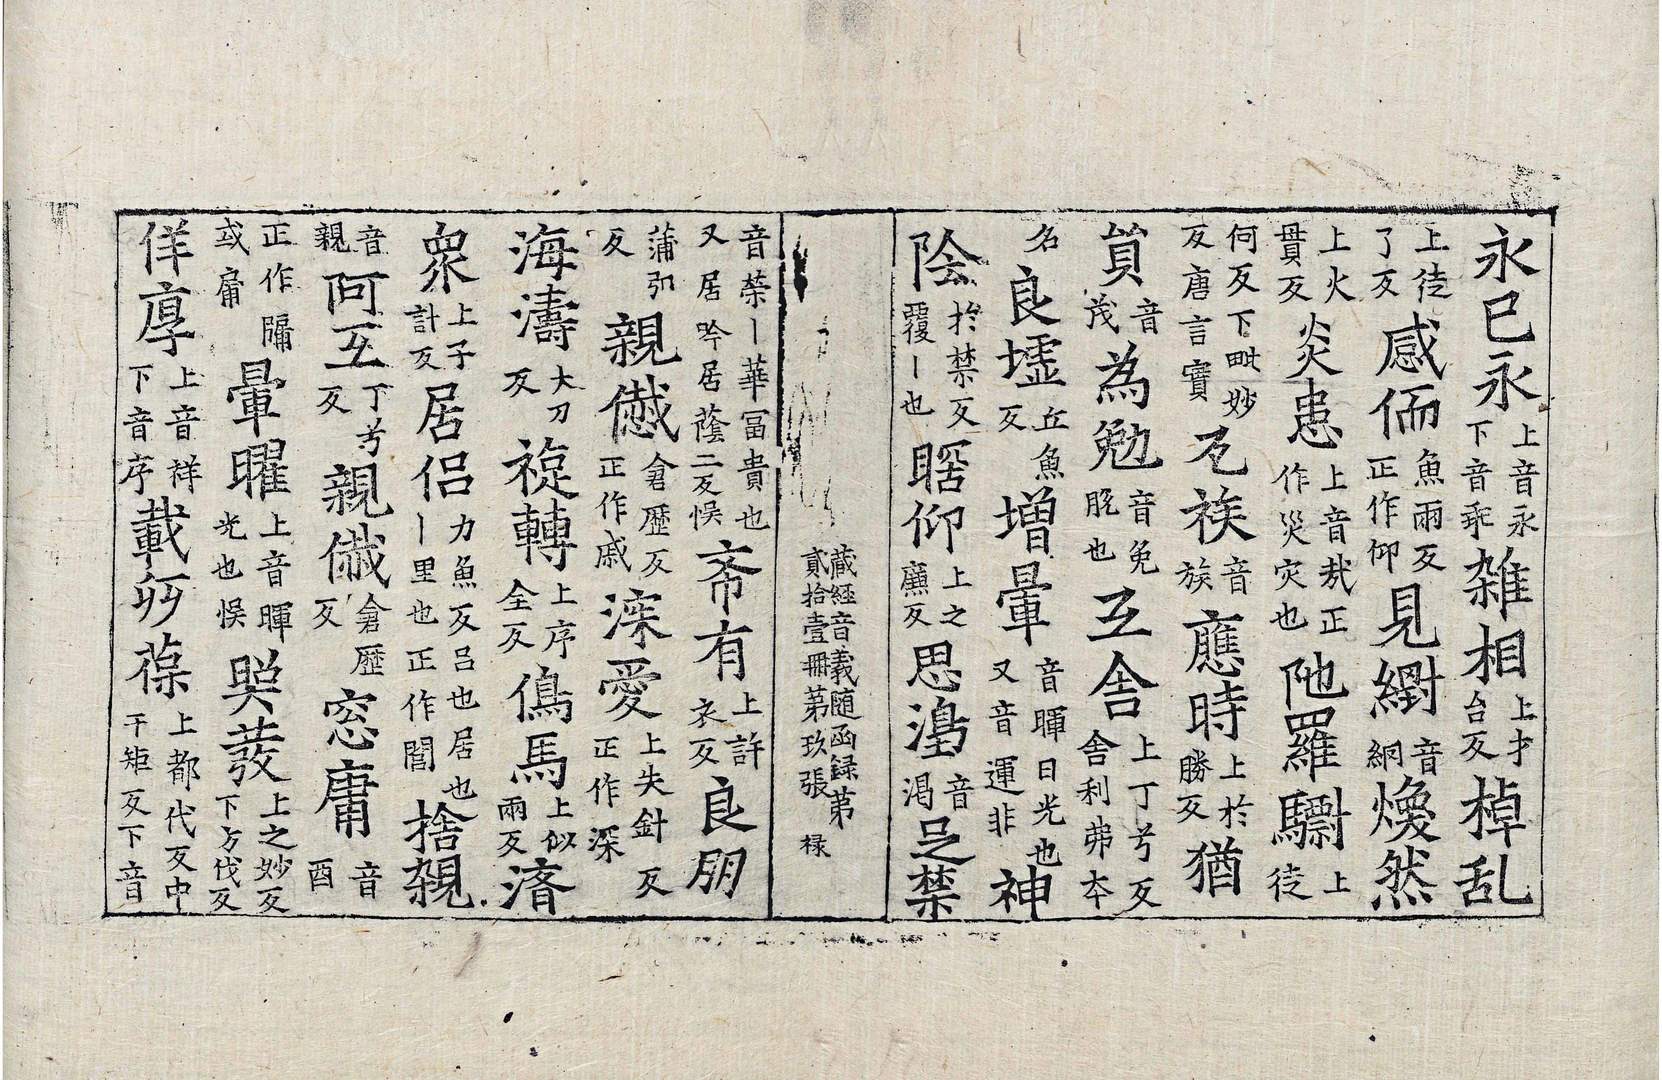 永巳永上音永下音乖雑相上才台反棹乱
上徒了反感㑂魚兩反正作仰見䌦音網煥然
上火貫反炎患上音烖正作災灾也阤羅驧上徒
何反下毗妙反唐言寶旡袟音族應時上於勝反猶
貿音茂為勉音免脱也互舎上丁兮反舎利弗本
名良墟丘魚反增暈音暉日光也又音運非神
陰於禁反覆丨也䁍仰上之廉反思㵣音渇足禁
藏經音義随函録第貳拾壹冊第玖張 禄
音榮丨華冨貴也又居吟居蔭二反悮斎有上許衣反良朋
蒲弘反親儎倉歷反正作戚㴱愛上失針反正作深
海濤大刀反䙋轉上序全反鴋馬上似兩反濟
衆上子計反居侣力魚反吕也居也丨里也正作閭捨親
音親阿互丁兮反親㦸倉歷反窓庸音酉
正作牖或庸暈曜上音暉光也悮㷼發上之妙反下方伐反
佯㕂上音祥下音序載䂨葆上都代反中干矩反下音